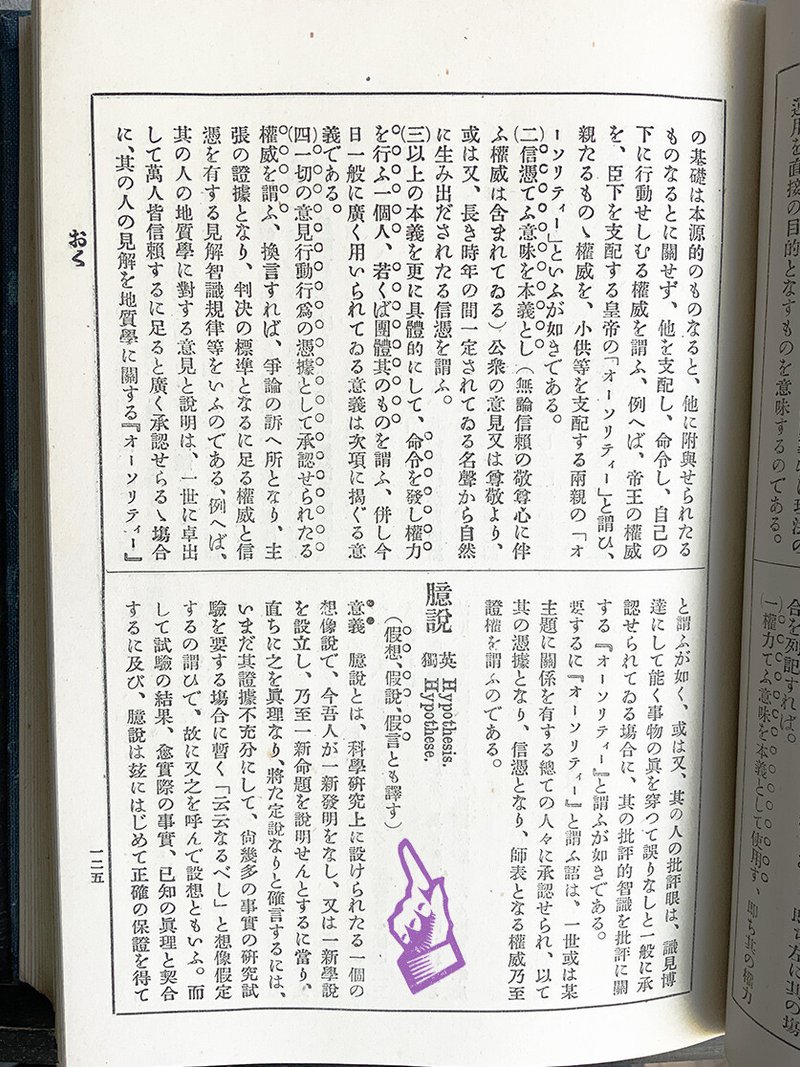 の基礎は本源的のものなると、他に附與せられたる
ものなるとに關せず、他を支配し、命令し、自己の
下に行動せしむる權威を謂ふ、例へば、帝王の權威
を、臣下を支配する皇帝の「オーソリティー」と謂ひ、
親たるものゝ權威を、小供等を支配する兩親の「オ
ーソリティー」といふが如きである。
(二)信憑てふ意味を本義とし(無論信賴の敬尊心に伴
ふ權威は含まれてゐる)公衆の意見又は尊敬より、
或は又、長き時年の間一定されてゐる名聲から自然
に生み出だされたる信憑を謂ふ。
(三)以上の本義を更に具體的にして、命令を發し權力
を行ふ一個人、若くば團體其のものを謂ふ、併し今
日一般に廣く用いられてゐる意義は次項に揭ぐる意
義である。
(四)一切の意見行動行爲の憑據として承認せられたる
權威を謂ふ、換言すれば、爭論の訴へ所となり、主
張の證據となり、判決の標準となるに足る權威と信
憑を有する見解智識規律等をいふのである、例へば、
其の人の地質學に對する意見と說明は、一世に卓出
して萬人皆信賴するに足ると廣く承認せらるゝ塲合
に、其の人の見解を地質學に關する『オーソリティー』
と謂ふが如く、或は又、其の人の批評眼は、識見博
達にして能く事物の眞を穿つて誤りなしと一般に承
認せられてゐる塲合に、其の批評的智識を批評に關
する『オーソリティー』と謂ふが如きである。
要するに『オーソリティー』と謂ふ語は、一世或は某
主題に關係を有する總ての人々に承認せられ、以て
其の憑據となり、信憑となり、師表となる權威乃至
證權を謂ふのである。
臆說 英 Hypothesis. 獨 Hypothese.
(假想、假說、假言とも譯す)
意義 臆說とは、科學硏究上に設けられたる一個の
想像說で、今吾人が一新發明をなし、又は一新學說
を設立し、乃至一新命題を說明せんとするに當り、
直ちに之を眞理なり、將た定說なりと確言するには、
いまだ其證據不充分にして、尙幾多の事實の硏究試
驗を要する塲合に暫く「云云なるべし」と想像假定
するの謂ひで、故に又之を呼んで設想ともいふ。而
して試驗の結果、愈實際の事實、已知の眞理と契合
するに及び、臆說は玆にはじめて正確の保證を得て
おく
一二五
合を列記すれば。
(一)權力てふ意味を本義として使用す、卽ち其の權力